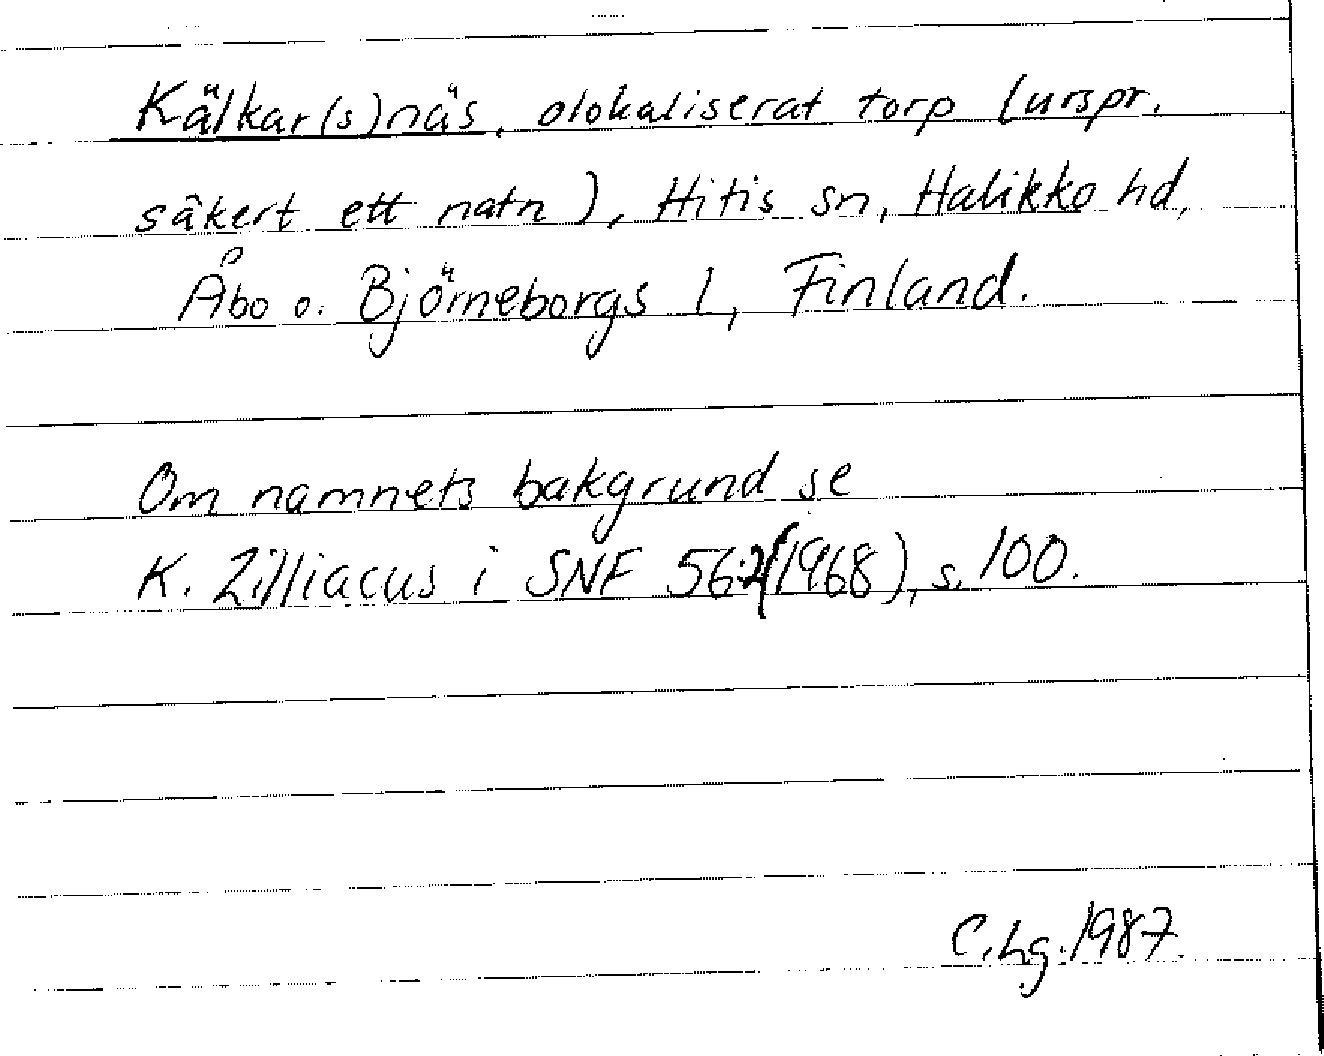 Kälkar(s)näs, olokaliserat torp (urspr.
säkert ett natn), Hitis sn, Halikko hd,
Åbo o. Björneborgs l, Finland.
Om namnets bakgrund se
K. Zilliacus i SNF 56:2(1968), s. 100.
C.Lg. 1987.